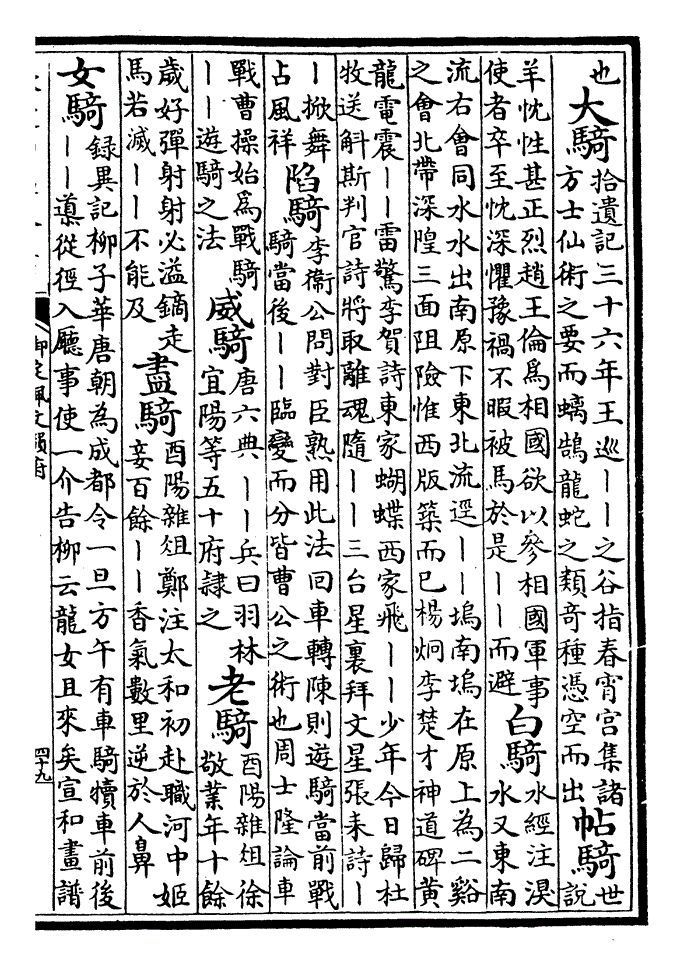 也
大騎
拾遺記三十六年王巡——之谷指春宵宮集諸
方士仙術之要而螭鵠龍蛇之類奇種憑空而出
帖騎
世
說
羊忱性甚正烈趙王倫爲相國欲以參相國軍事
使者卒至忱深懼豫禍不暇被馬於是——而避
白騎
水經注淏
水又東南
流右會同水水出南原下東北流逕——塢南塢在原上為二谿
之會北帶深隍三面阻險惟西版築而已楊炯李楚才神道碑黃
龍電震——雷驚李賀詩東家蝴蝶西家飛——少年今日歸杜
牧送斛斯判官詩將取離魂隨——三台星裏拜文星張耒詩—
—掀舞
占風祥
陷騎
李衞公問對臣熟用此法回車轉陳則遊騎當前戰
騎當後——臨變而分皆曹公之術也周士隆論車
戰曹操始爲戰騎
——遊騎之法
威騎
唐六典——兵曰羽林
宜陽等五十府隷之
老騎
酉陽雜俎徐
敬業年十餘
歲好彈射射必溢鏑走
馬若滅——不能及
盡騎
酉陽雜俎鄭注太和初赴職河中姬
妾百餘——香氣數里逆於人鼻
女騎
錄異記柳子華唐朝為成都令一旦方午有車騎犢車前後
——導從徑入廳事使一介告柳云龍女且來矣宣和畫譜
御定佩文韻府
四十九